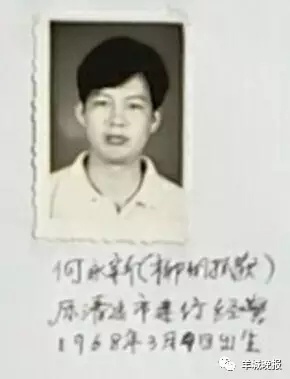 何永新(柳州抓获)
原清远市建行经警
1968年3月9日出生
羊城晚报